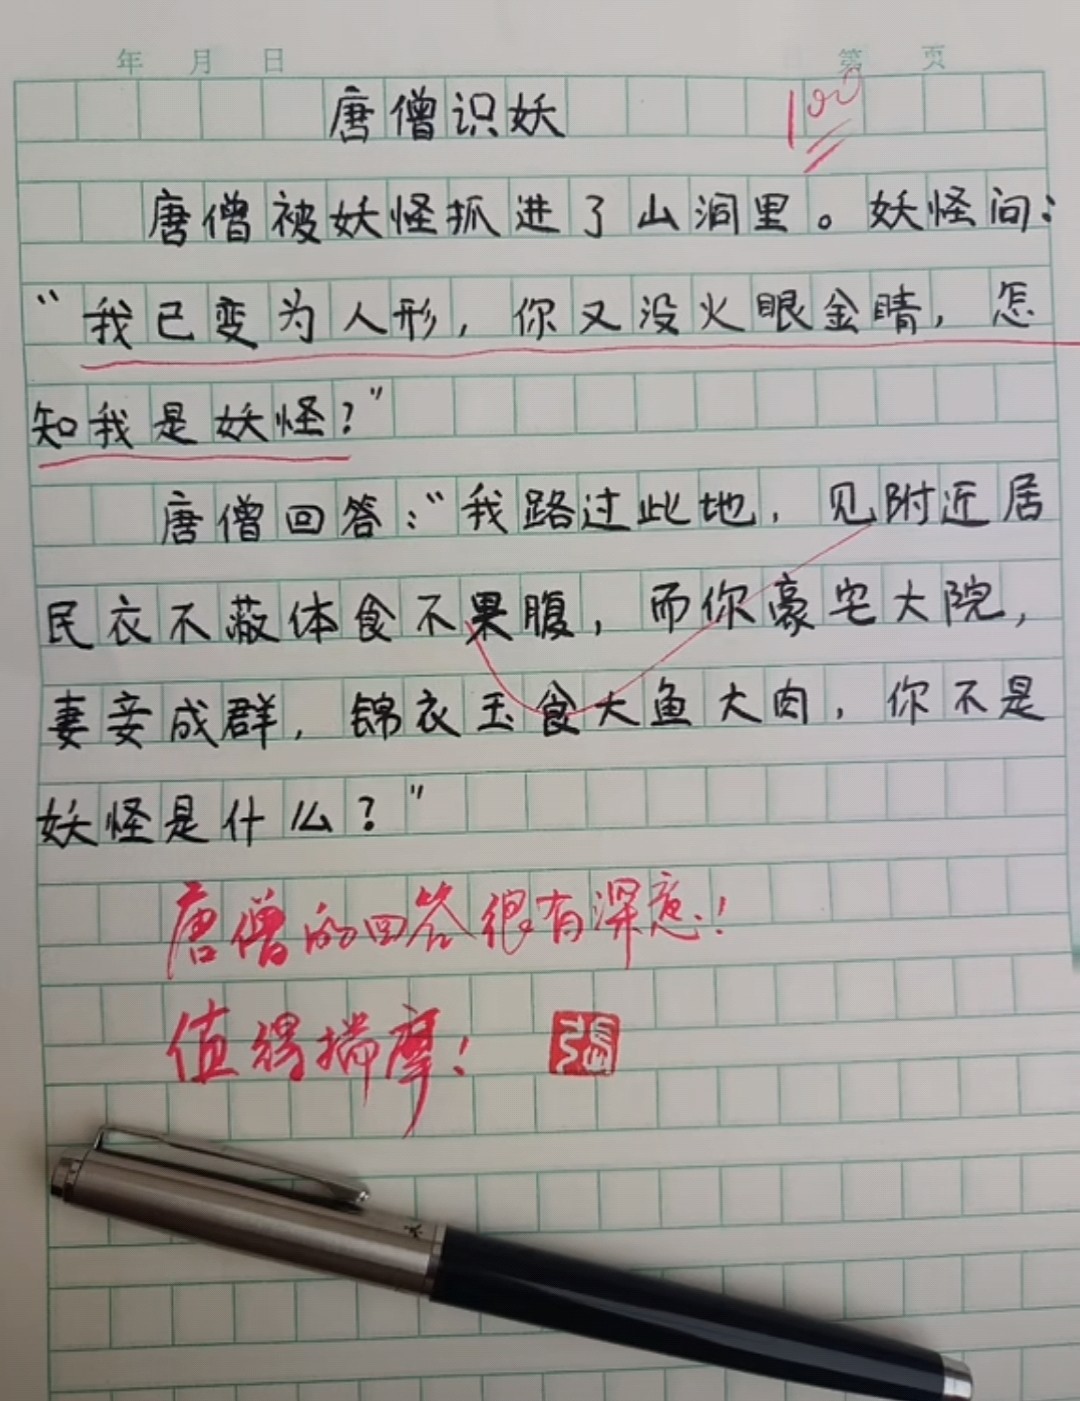 年 月 日 第 页
唐僧识妖 100
唐僧被妖怪抓进了山洞里。妖怪问:
“我已变为人形,你又没火眼金睛,怎
知我是妖怪?”
唐僧回答:“我路过此地,见附近居
民衣不蔽体食不果腹,而你豪宅大院,
妻妾成群,锦衣玉食大鱼大肉,你不是
妖怪是什么?”
唐僧的回答很有深意!
值得揣摩! 張